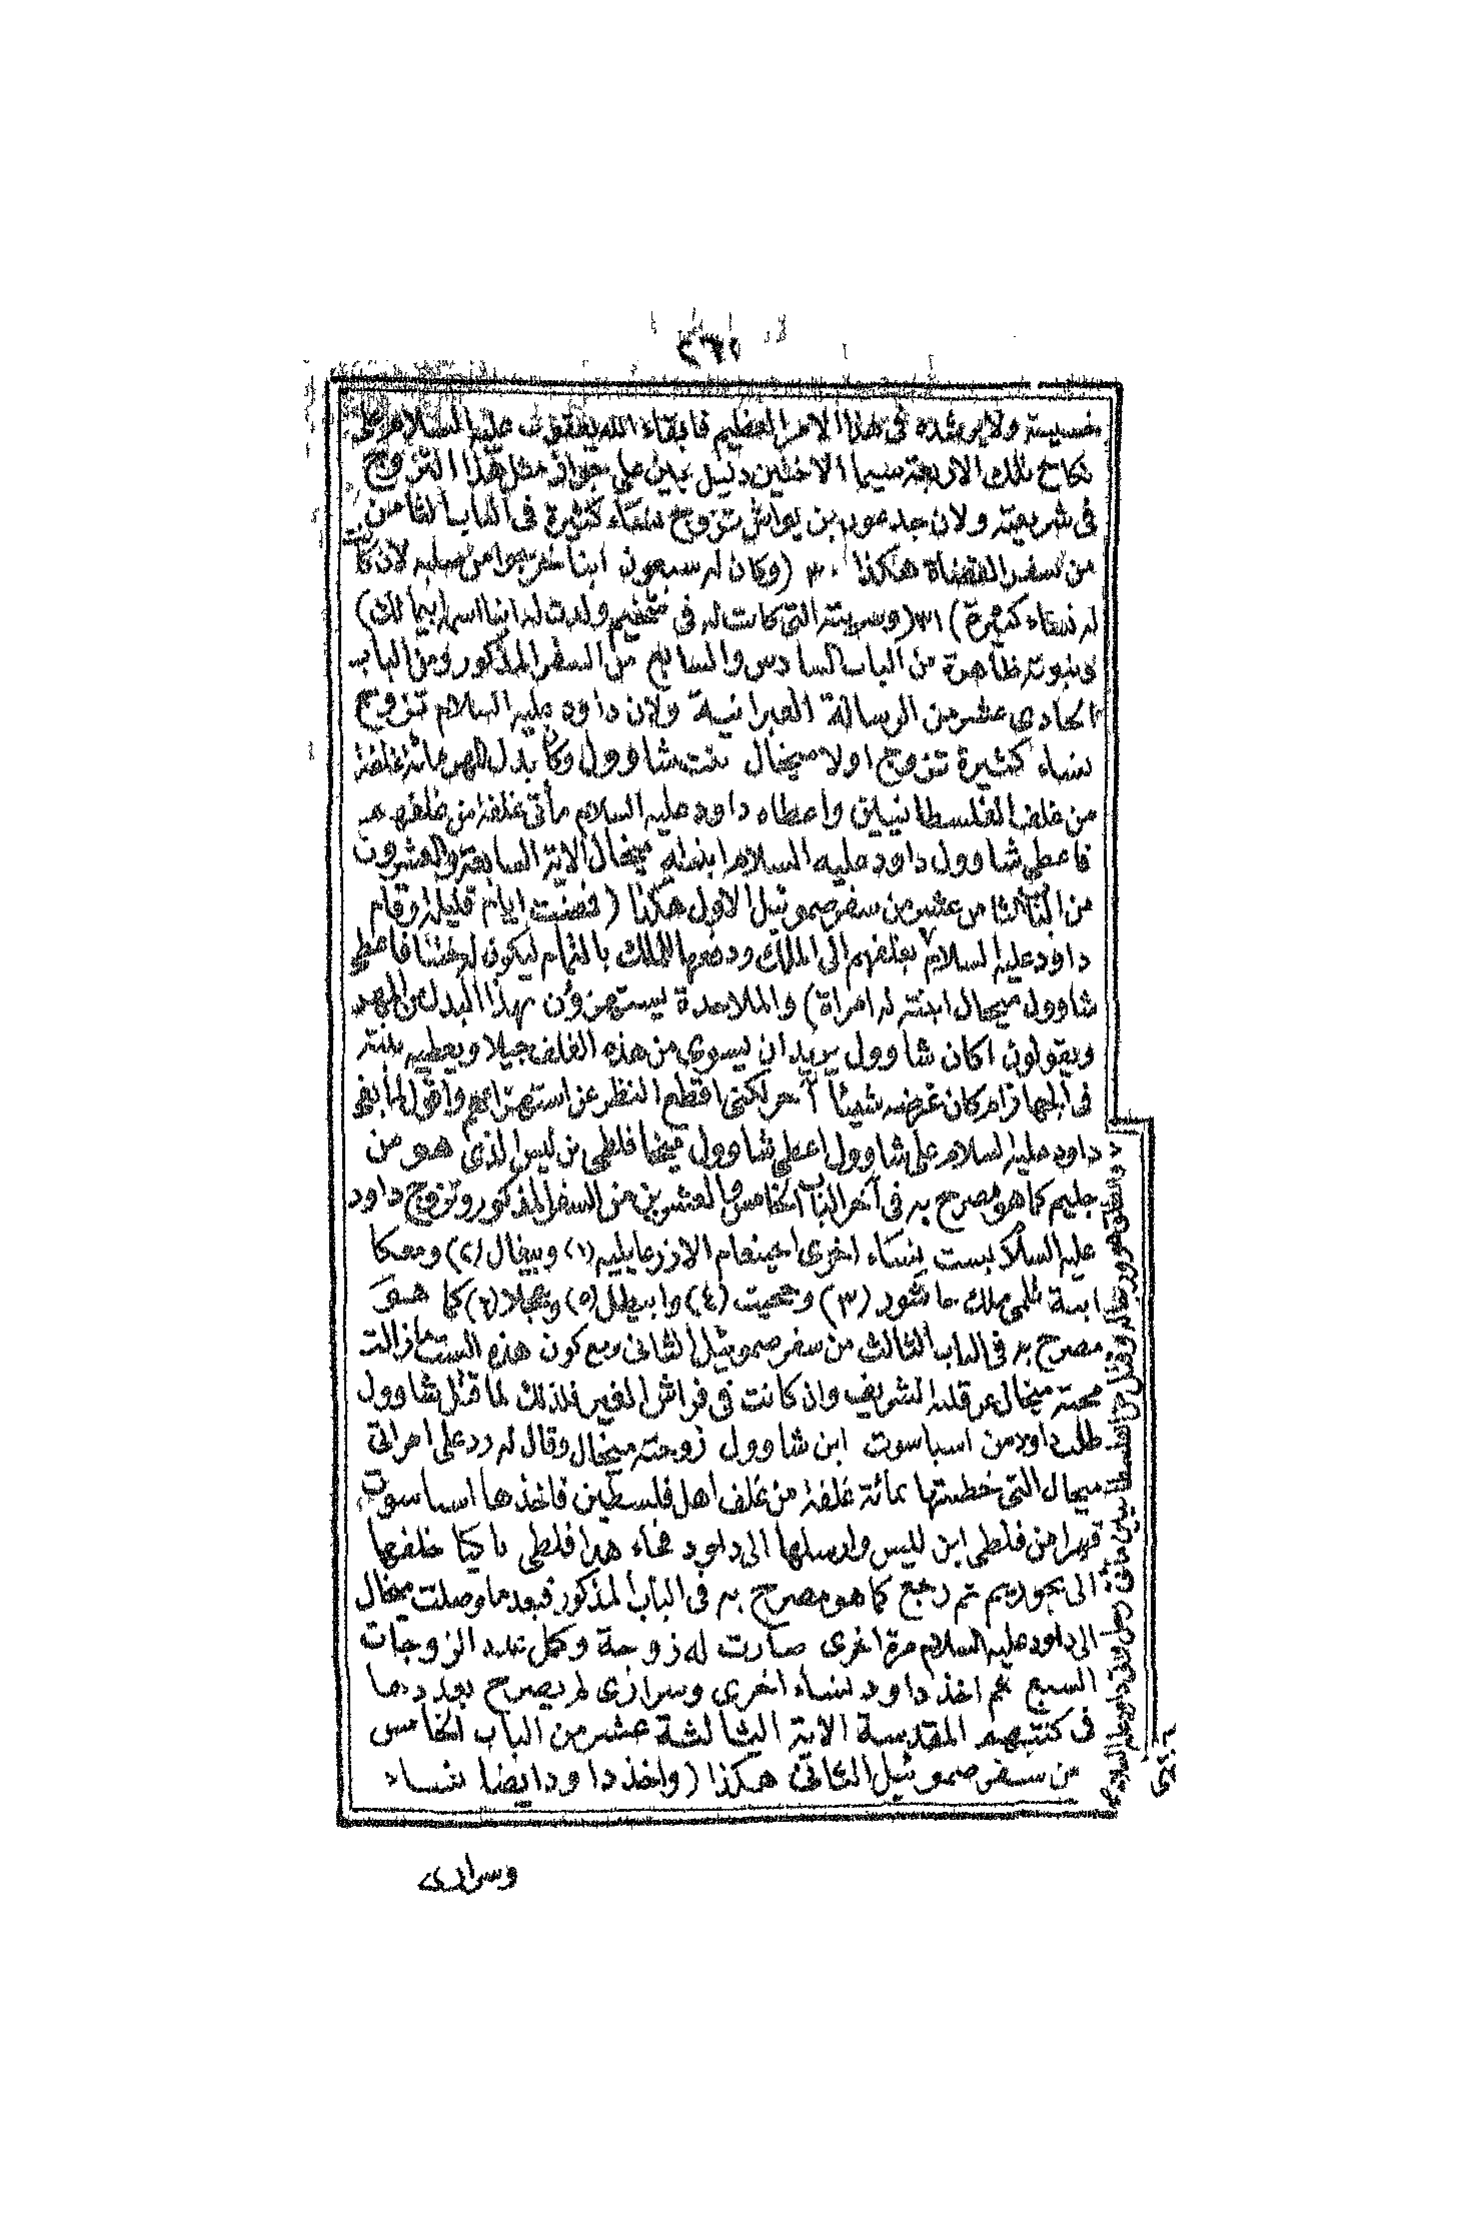 ٢٦٠
خسيسة ولا يرشده فى هذا الامر العظيم فابقاء الله يعقوب عليه السلام على
نكاح تلك الاربعة سيما الاختين دليل بين على جواز مثل هذا التزوج
فى شريعته ولان جدعون بن يواش تزوج نساء كثيرة فى الباب الثامن
من سفر القضاة هكذا ٣٠ (وكان له سبعون ابنا خرجوا من صلبه لان كانت
له نساء كثيرة) ٣١ (وسريته التى كانت له فى شخيم ولدت له ابنا اسمه ابيمالك)
ونبوته ظاهرة من الباب السادس والسابع من السفر المذكور ومن الباب
الحادى عشر من الرسالة العبرانية ولان داود عليه السلام تزوج
نساء كثيرة تزوج اولا ميخال بنت شاوول وكان بدل المهر مائة غلفة
من غلف الفلسطانيين واعطاه داود عليه السلام مأتى غلفة من غلفهم
فاعطى شاوول داود عليه السلام ابنته ميخال الاية السابعة والعشرون
من الباب الثامن عشر من سفر صموئيل الاول هكذا (فمضت ايام قليلة وقام
داود عليه السلام بغلفهم الى الملك ودفعها للملك بالتمام ليكون له ختنا فاعطى
شاوول ميخال ابنته له امراة) والملاحدة يستهزؤن بهذا البدل من المهر
ويقولون اكان شاوول يريد ان يسوى من هذه الغلف حبلا ويعطيه بنته
فى الجهاز ام كان غرضه شيئا آخر لكنى اقطع النظر عن استهزائهم واقول لما بغى
داود عليه السلام على شاوول اعطى شاوول ميخال فلطى بن ليس الذى هو من
جليم كما هو مصرح به فى آخر الباب الخامس والعشرين من السفر المذكور وتزوج داود
عليه السلام بست نساء اخرى احينعام الازرعايليه (١) وبيغال (٢) ومعكا
ابنة تلمى ملك جاشور (٣) وحجيت (٤) وابيطل (٥) وعجلا (٦) كما هو
مصرح به فى الباب الثالث من سفر صموئيل الثانى ومع كون هذه الست ما زالت
محبة ميخال عن قلبه الشريف وان كانت فى فراش الغير فلذلك لما قتل شاوول
طلب داود من اسباسوت ابن شاوول زوجته ميخال وقال له رد على امراتى
ميخال التى خطبتها بمائة غلفة من غلف اهل فلسطين فاخذها اسباسوت
قهرا من فلطى ابن ليس وارسلها الى داود فجاء هذا فلطى باكيا خلفها
الى بحوريم ثم رجع كما هو مصرح به فى الباب المذكور فبعد ما وصلت ميخال
الى داود عليه السلام مرة اخرى صارت له زوجة وكمل عدد الزوجات
السبع ثم اخذ داود نساء اخرى وسرارى لم يصرح بعددها
فى كتبهم المقدسة الاية الثالثة عشر من الباب الخامس
من سفر صموئيل الثانى هكذا (واخذ داود ايضا نساء
وسرارى